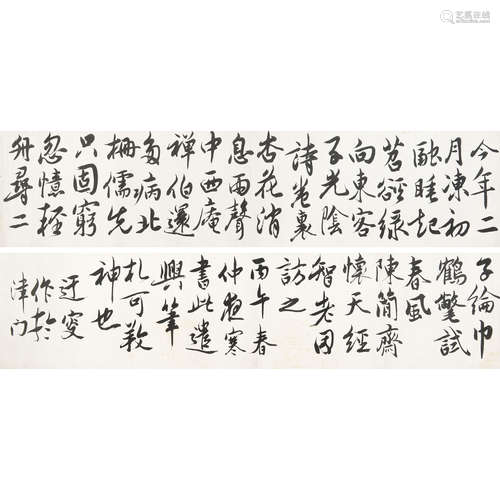 艺狐在线
今年二
月凍初
融睡起
苕谿綠
向東客
子光陰
詩卷裏
杏花消
息雨聲
中西庵
禅伯還
多病北
柵儒先
只固窮
忽憶輕
舟尋二
子綸巾
鶴氅試
春風
陳簡齋
懷天經
智老因
訪之
丙午春
仲夜寒
書此遣
興筆
札可教
神也
迂叟
作於
津門